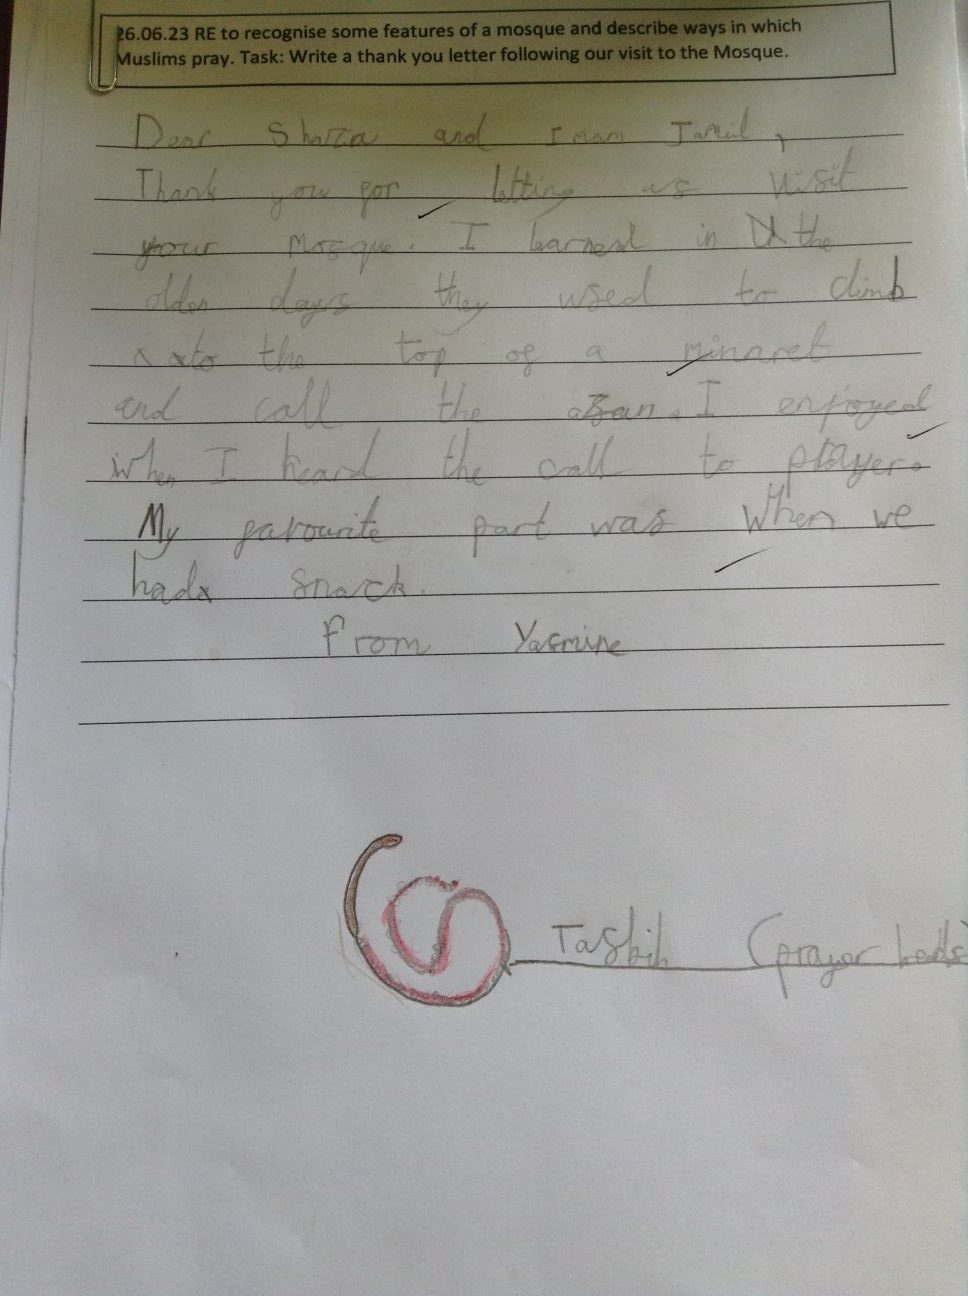 26.06.23 RE to recognise some features of a mosque and describe ways in which
Muslims pray. Task: Write a thank you letter following our visit to the Mosque.
Dear Shazia and Imam Jamil,
Thank you for letting us visit
your Mosque. I learned in the
olden days they used to climb
to the top of a minaret
and call the azan. I enjoyed
when I heard the call to player.
My favourite part was when we
had a snack.
From Yasmine
Tasbih (prayer beads)